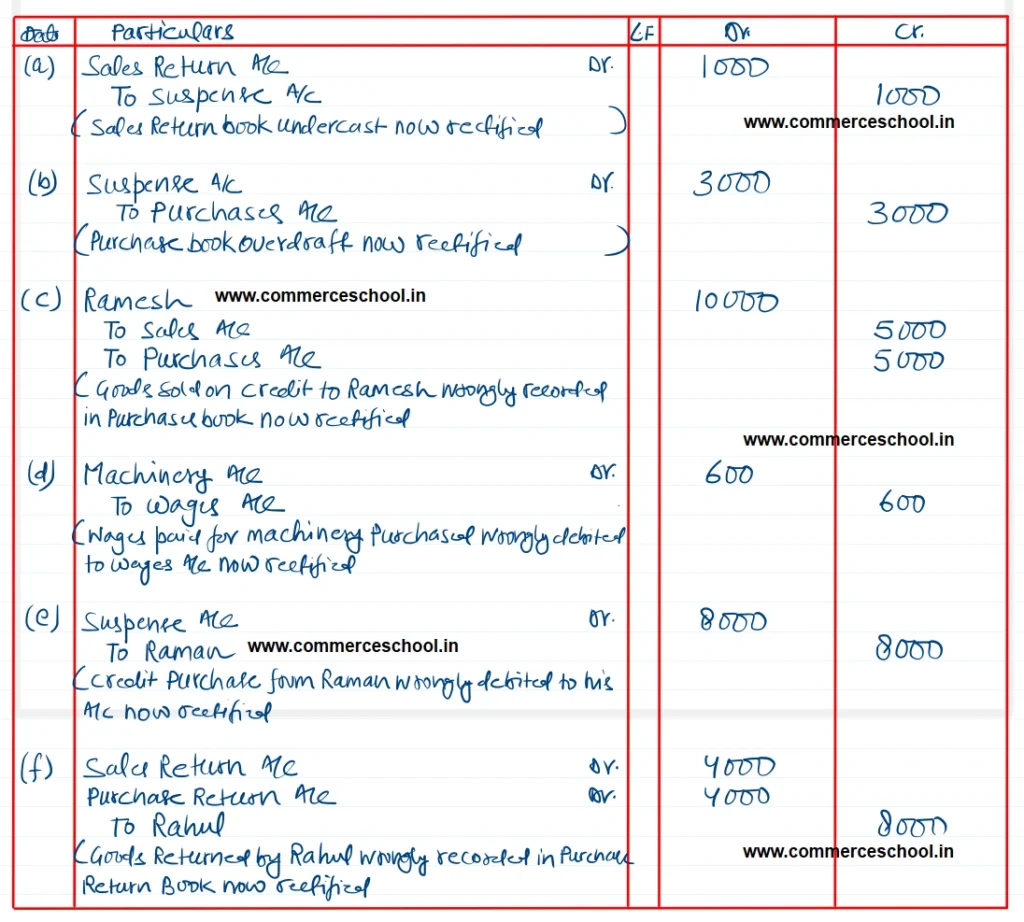 Date Particulars LF Dr. Cr.
(a) Sales Return A/c Dr. 1000
To Suspense A/c 1000
(Sales Return book undercast now rectified)
www.commerceschool.in
(b) Suspense A/c Dr. 3000
To Purchases A/c 3000
(Purchase book overdraft now rectified)
(c) Ramesh www.commerceschool.in 10000
To Sales A/c 5000
To Purchases A/c 5000
(Goods sold on credit to Ramesh wrongly recorded
in Purchase book now rectified
www.commerceschool.in
(d) Machinery A/c Dr. 600
To Wages A/c 600
(Wages paid for machinery Purchased wrongly debited
to wages A/c now rectified
(e) Suspense A/c Dr. 8000
To Raman www.commerceschool.in 8000
(Credit Purchase from Raman wrongly debited to his
A/c now rectified
(f) Sales Return A/c Dr. 4000
Purchase Return A/c Dr. 4000
To Rahul 8000
(Goods Returned by Rahul wrongly recorded in Purchase
www.commerceschool.in
Return Book now rectified